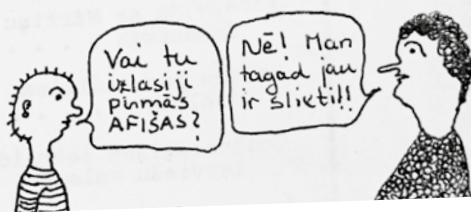 Vai tu
izlasiji
pirmās
AFIŠAS?
Nē! Man
tagad jau
ir slikti!!